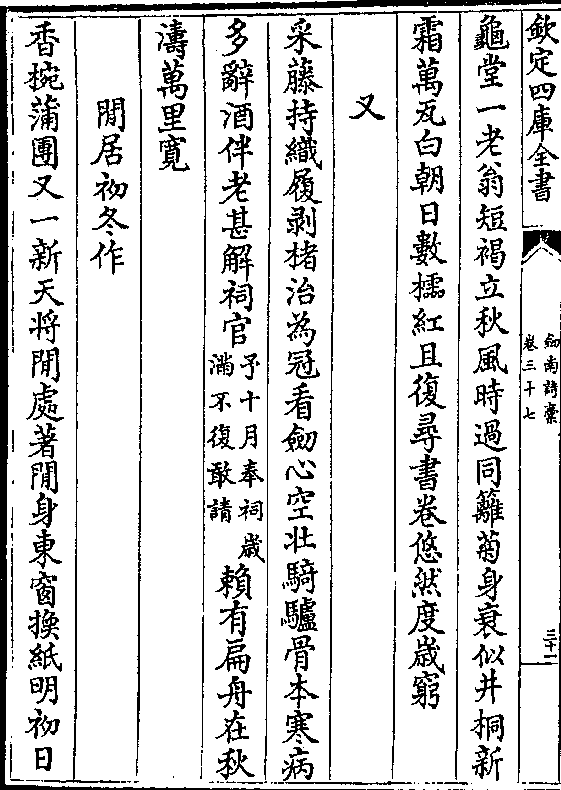 欽定四庫全書
劍南詩藁
卷三十七
三十一
龜堂一老翁短褐立秋風時過同籬菊身衰似井桐新
霜萬瓦白朝日數擩紅且復尋書卷悠然度歳窮
又
采藤持織履剥楮治為冠看劒心空壯騎驢骨本寒病
多辭酒伴老甚解祠官予十月奉祠歳滿不復敢請賴有扁舟在秋
濤萬里寛
閒居初冬作
香椀蒲團又一新天将閒處著閒身東窗換紙明初日